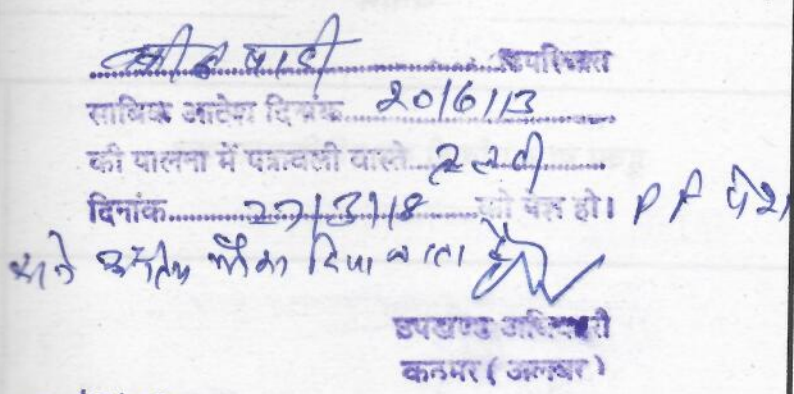 वादी उपस्थित
साबिक आदेश दिनांक 20/6/13
की पालना में पत्रावली वास्ते तलवी
दिनांक 27/3/18 को पेश हो। P F पेश
अन्तिम मौका दिया जाता है
उपखण्ड अधिकारी
कठूमर (अलवर)